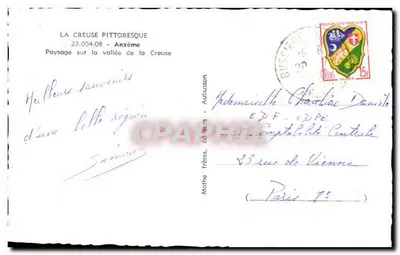 LA CREUSE PITTORESQUE
23.004.08 - Anzème
Paysage sur la vallée de la Creuse
Meilleurs souvenirs
d'une belle région
Simone
Mothe frères, éditeurs - Aubusson
Mademoiselle Danielo
EDF
Comptabilité Centrale
23 rue de Vienne
Paris
CPAPHIL